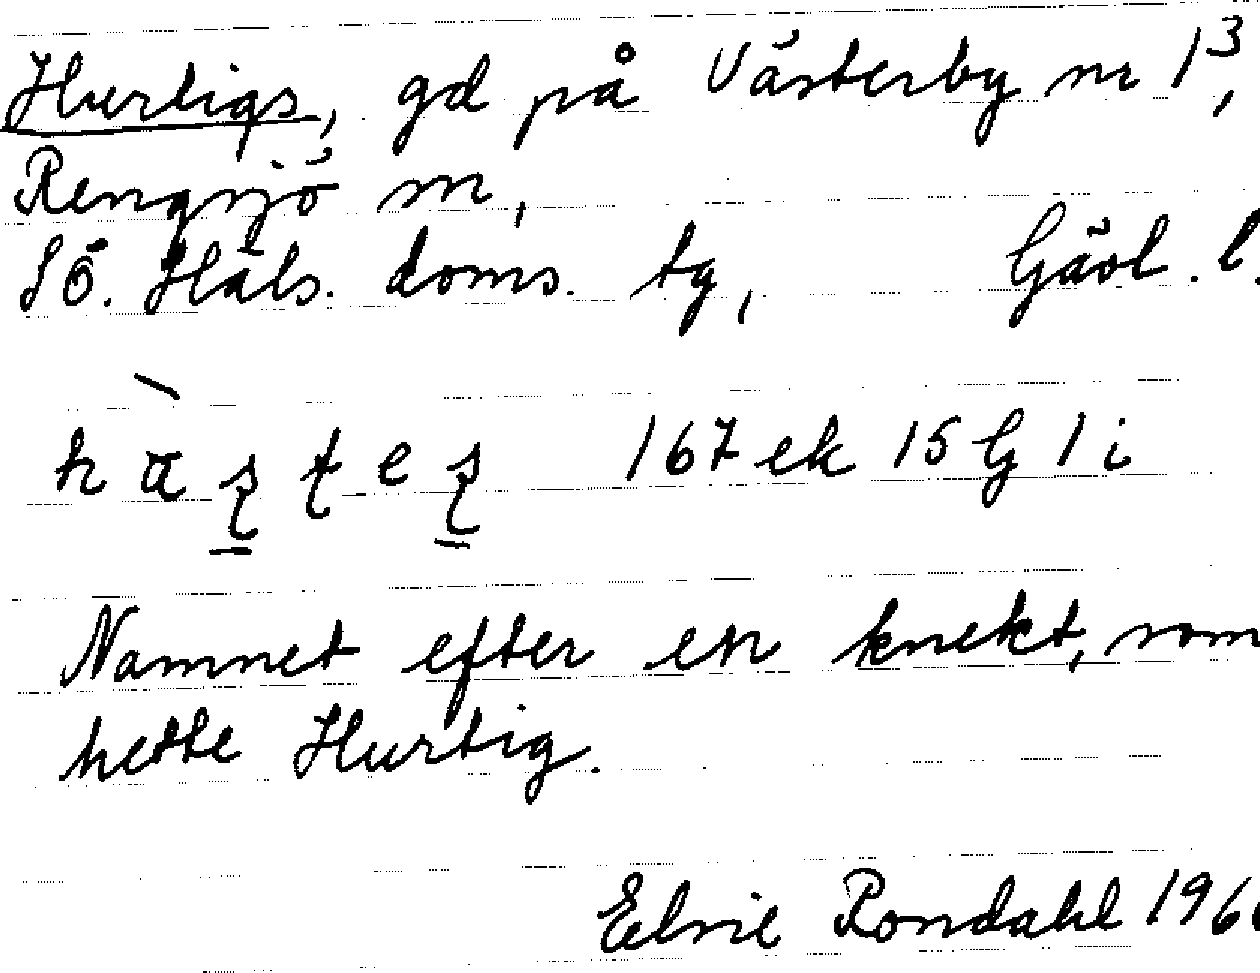 Hurtigs, gd på Västerby nr 1³,
Rengsjö sn,
SÖ. Häls. doms. tg, Gävl. l.
167 ek 15 G 1 i
Namnet efter en knekt, som
hette Hurtig.
Elvie Rondahl